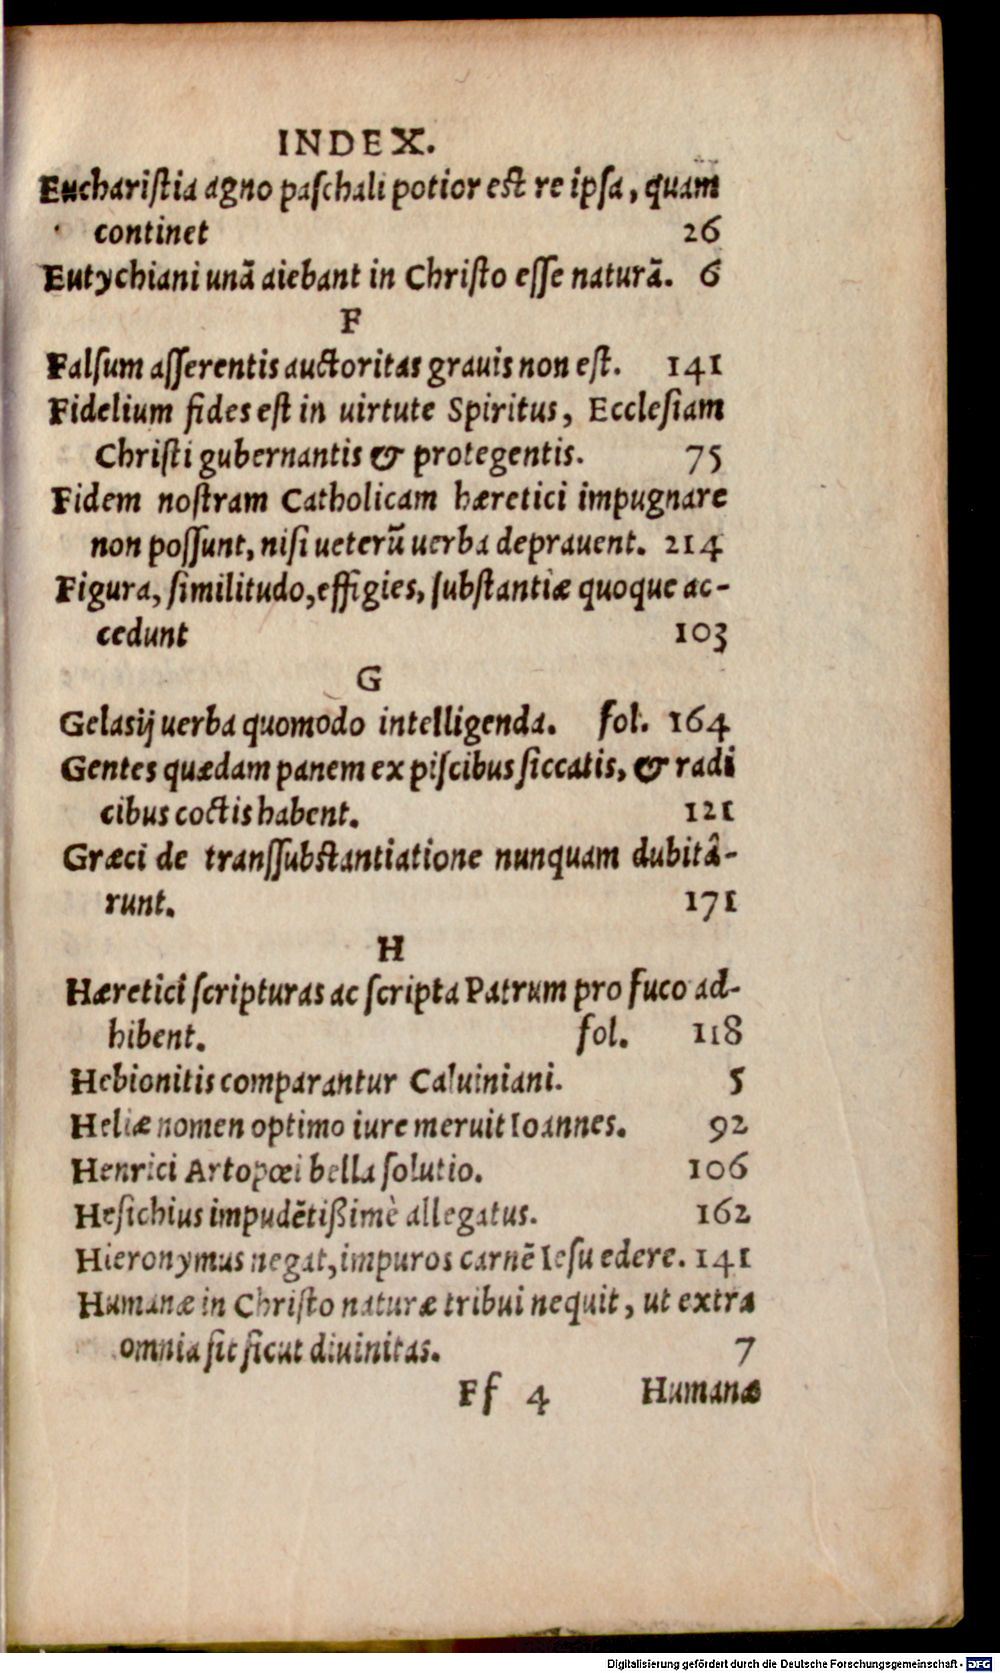 INDEX.
Euchariſtia agno paſchali potior eſt re ipſa, quam
continet 26
Eutychiani unā aiebant in Chriſto eſſe naturā. 6
F
Falſum aſſerentis auctoritas grauis non eſt. 141
Fidelium fides eſt in uirtute Spiritus, Eccleſiam
Chriſti gubernantis & protegentis. 75
Fidem noſtram Catholicam hæretici impugnare
non poſſunt, niſi ueterū uerba deprauent. 214
Figura, ſimilitudo, effigies, ſubſtantiæ quoque ac-
cedunt 103
G
Gelasij uerba quomodo intelligenda. fol. 164
Gentes quædam panem ex piſcibus ſiccatis, & radi
cibus coctis habent. 121
Græci de transſubſtantiatione nunquam dubitâ-
runt. 171
H
Hæretici ſcripturas ac ſcripta Patrum pro fuco ad-
hibent. fol. 118
Hebionitis comparantur Caluiniani. 5
Heliæ nomen optimo iure meruit Ioannes. 92
Henrici Artopœi bella ſolutio. 106
Heſichius impudētißimè allegatus. 162
Hieronymus negat, impuros carnē Ieſu edere. 141
Humanæ in Chriſto naturæ tribui nequit, ut extra
omnia ſit ſicut diuinitas. 7
Ff 4 Humanæ
Digitalisierung gefördert durch die Deutsche Forschungsgemeinschaft - DFG